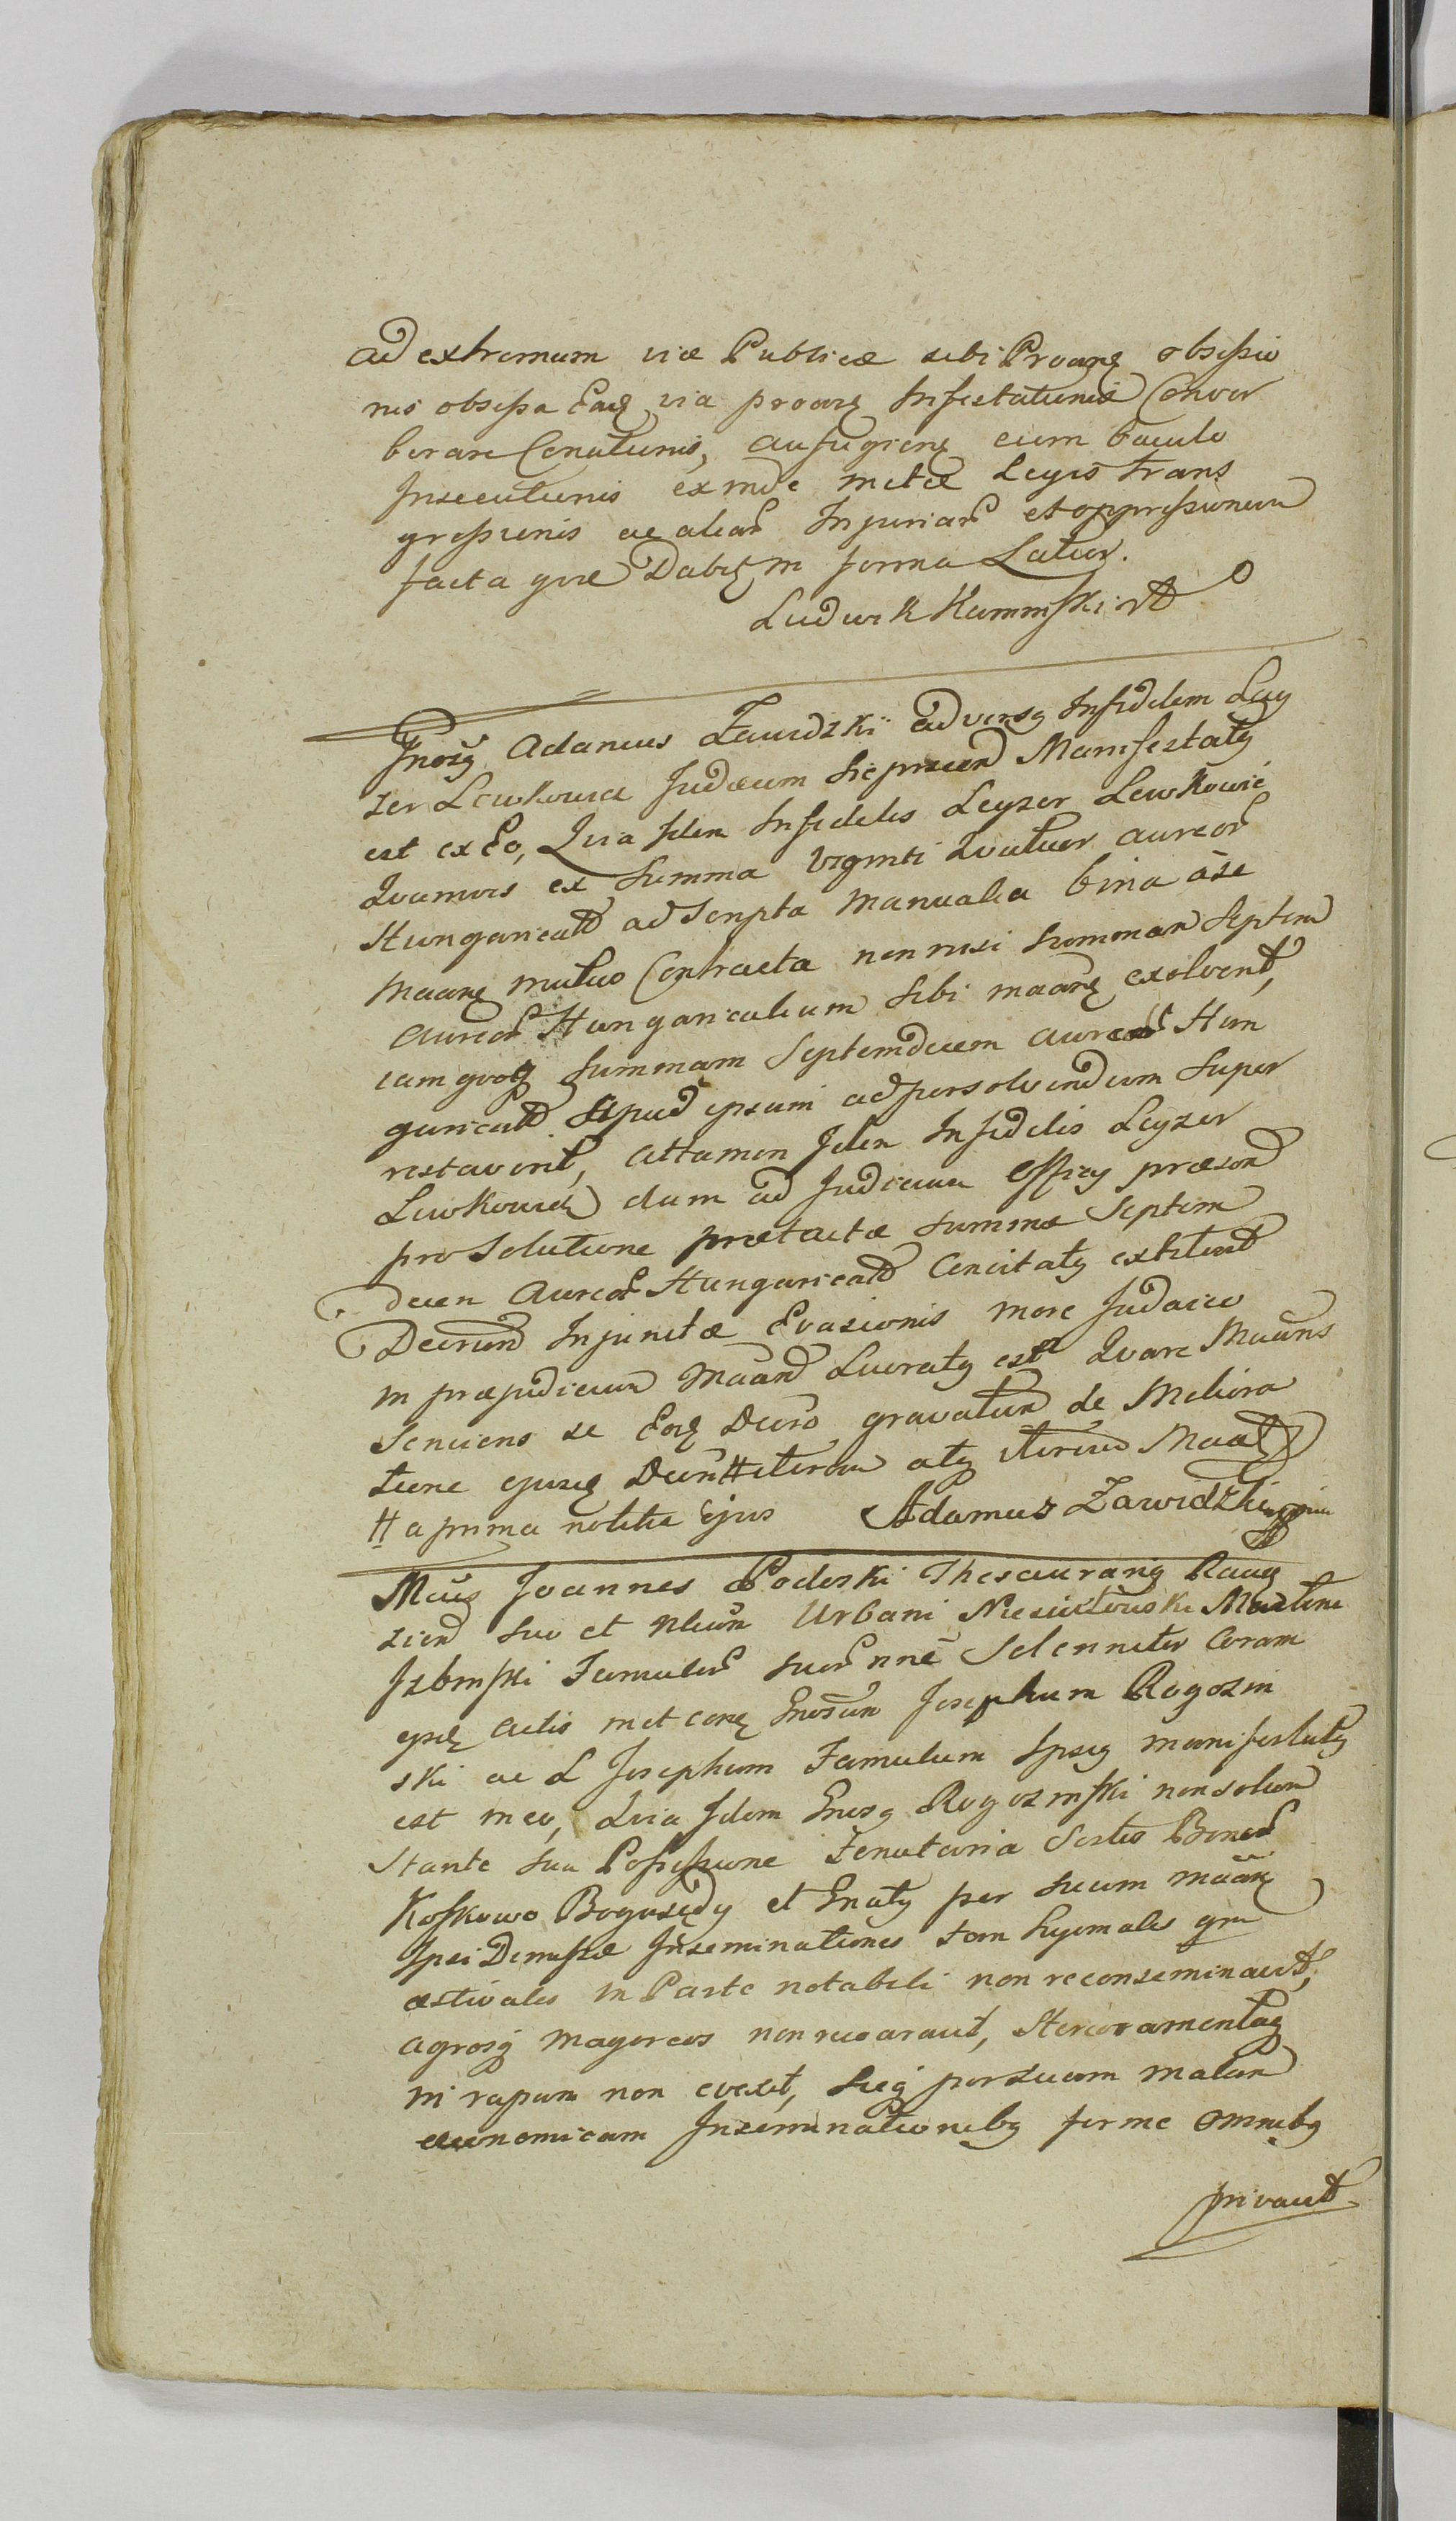 ad extremum viæ Publicæ sibi Proanę obsessio
nis obsessa Eaq via proanę Infestationis Conver
berare Conationis, aufugienę eum baculo
Insecutionis exinde metæ Legis trans
gressionis ac aliar Injuriar et oppressionum
facta quæ Dabit in forma Latior.
Ludwik Kaminski
Gnosus Adamus Zawidzki adversq Infidelem Ley
zer Lewkowicz Judæum hic præsen Manifestatq
est ex Eo, Quia Idem Infidelis Leyzer Lewkowic
Quamvis ex Summa Viginti Quatuor aureor
Hungaricał ad Scripta Manualia bina a se
Maanę mutuo Contracta non nisi Summam Septem
Aureor Hungaricalium Sibi maanę exolverit,
iamqvoq Summam Septemdecem aureor Hun
garicał Apud ipsum ad persolvendum Super
restaverit, attamen Idem Infidelis Leyzer
Lewkowicz dum ad Judicium Officy præsen
pro Solutione prætactæ Summæ Septem
decem Aureor Hungaricał Concitatq extiterit
Decrum Injunctæ Evasionis more Judaico
in præjudicium Maan Lucratq est Qvare Maans
Senciens se Eoq Decro gravatum de Meliora
tione ejusq Decri # iterum atq iterum Maat
# a prima notitia Ejus Adamus Zawidzki mpia
Mcus Joannes Podoski Thesaurariq Raciq
zien suo et Nleum Urbani Niesiułowski Martini
Izbinski Famulor suor nne Solenniter Coram
ipsę actis met conę Gnosum Josephum Rogozin
ski ac L Josephum Famulum Ipsiq manifestatq
est in eo, Quia Idem Gnosq Rogozinski non solum
Stante sua Possessione Tenutaria Sortis Bonor
Koskowo Bogusędy et Gnatq per Suum maanę
Ipsi Demissæ Inseminationes tam hyemales qm
æstivales in Parte notabili non reconseminavit,
agrosq magereos non reoaravit, Stercoramentaq
in rapam non evexit, Sicq per Suam malam
œconomicam Inseminationibq ferme omnibq
privavit